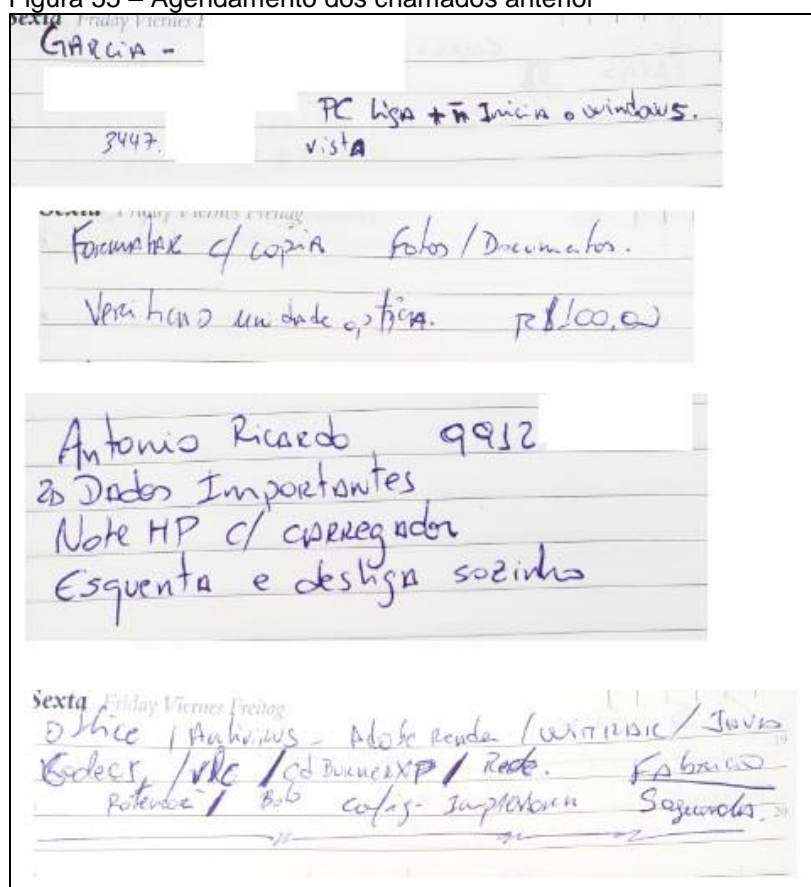 Figura 35 – Agendamento dos chamados anterior
Sexta Friday Viernes
GARCIA -
PC Liga + ñ Inicia o windows.
3447. vista
Sexta Friday Viernes Freitag
Formatar c/ copia Fotos / Documentos.
Verificano unidade optica. R$100,00
Antonio Ricardo 9912
Dados Importantes
Note HP c/ carregador
Esquenta e desliga sozinho
Sexta Friday Viernes Freitag
Office / Antivirus - Adobe Reader / WINRAR / Java
19
Codecs, / VLC / Cd BurnerXP / Rede. Fabricio
config- Impressora Segunda.
20